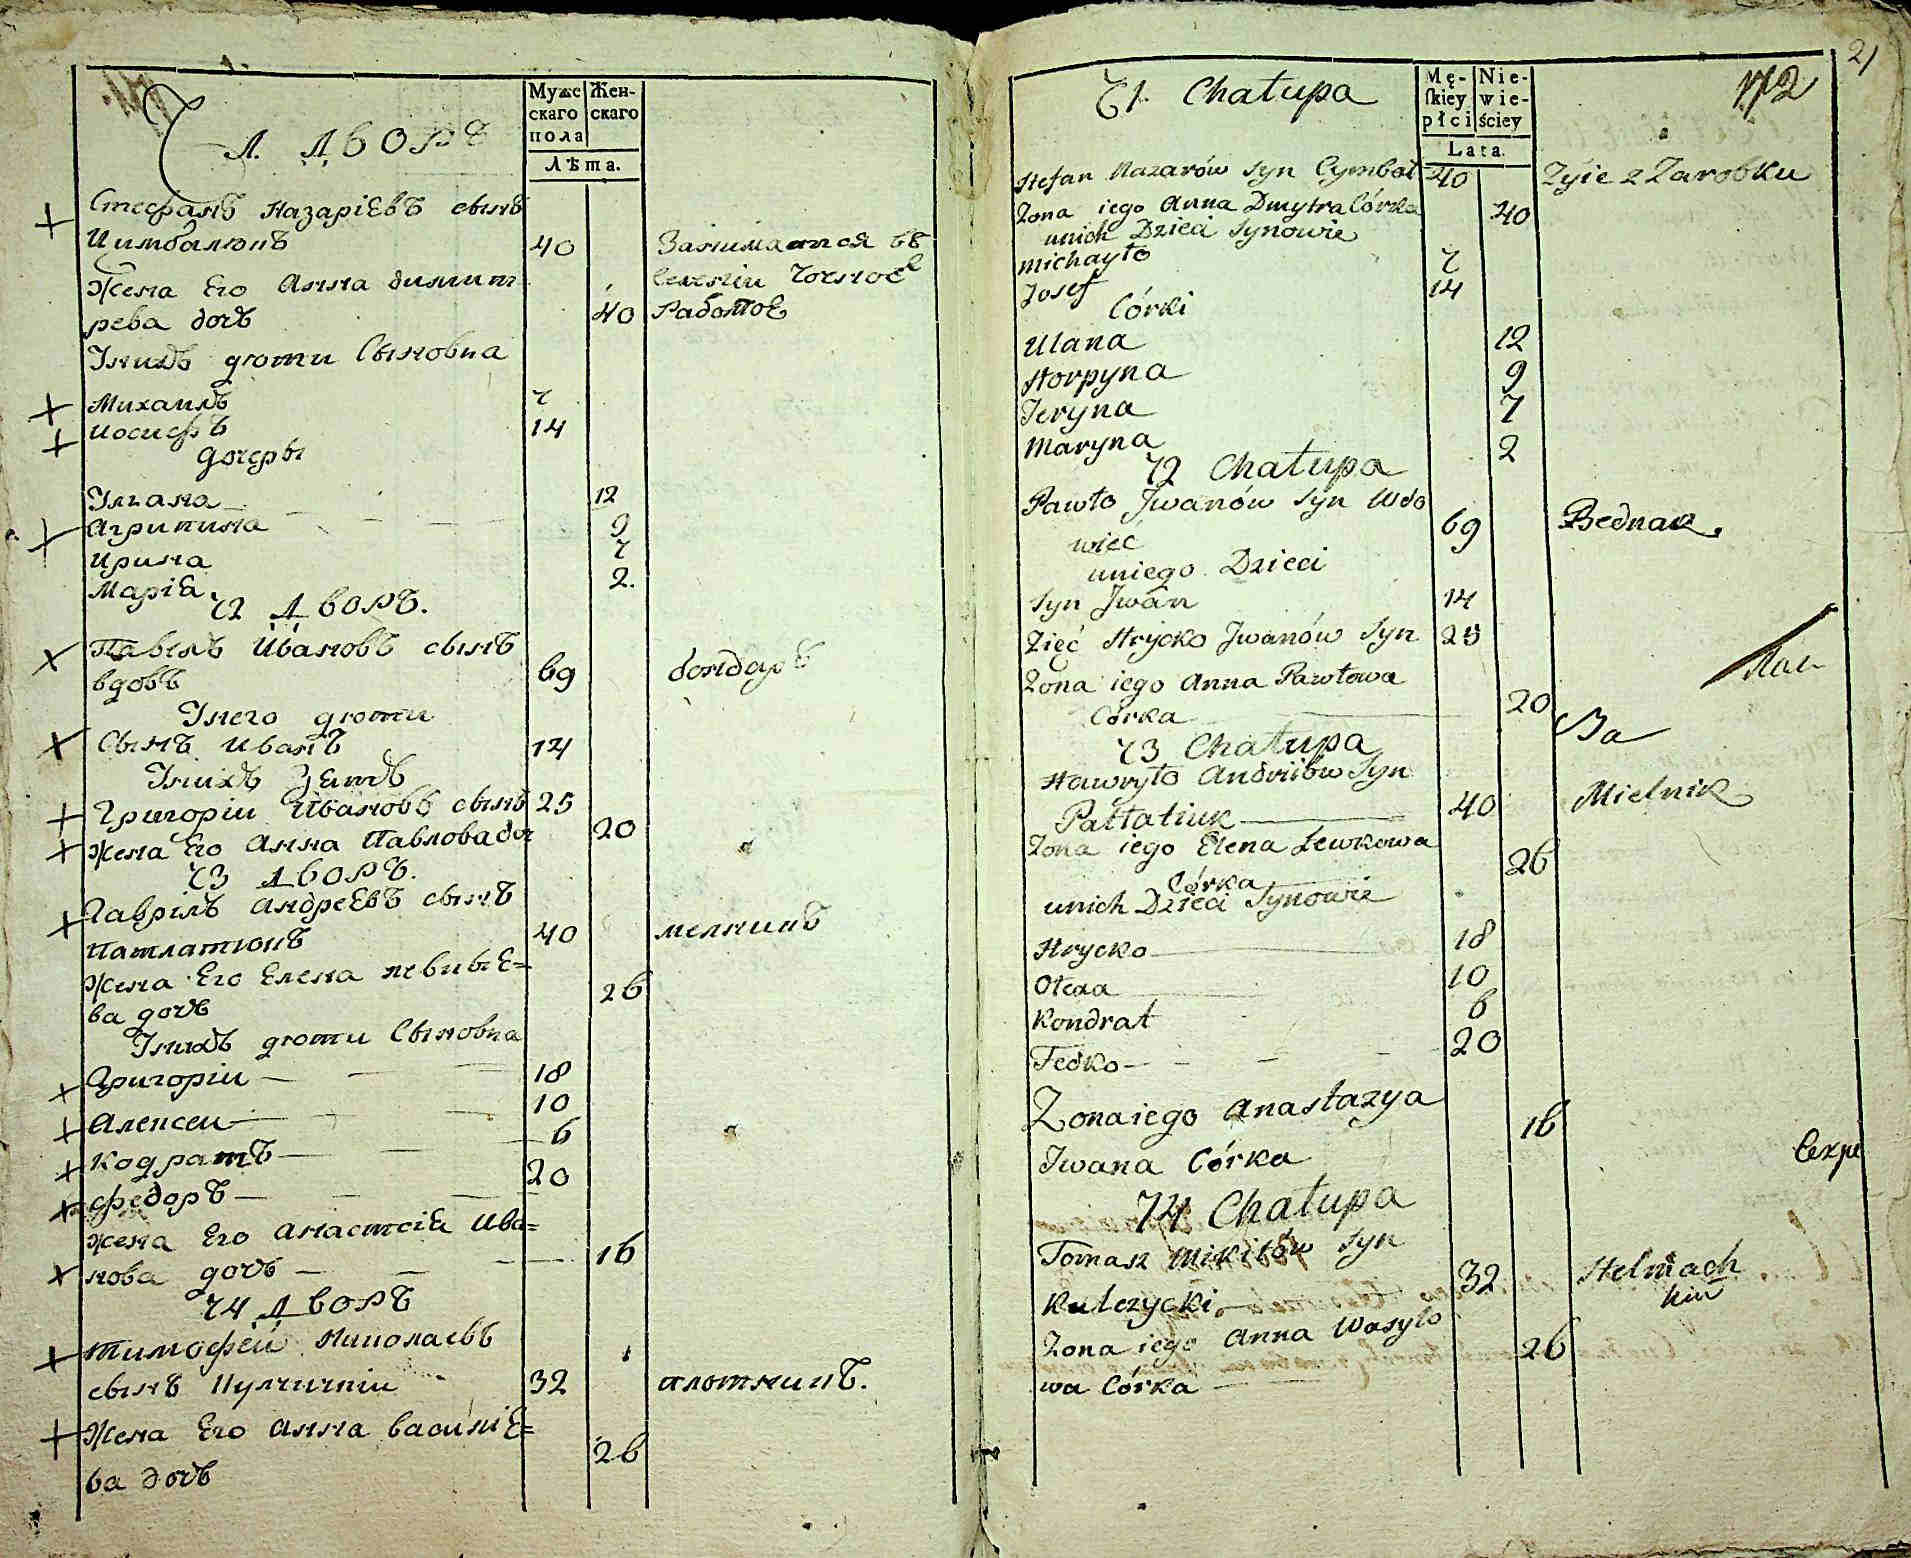 Муже
скаго
пола
Жен-
скаго
Лѣта.
71. Дворъ
Стефанъ Назарiевъ сынъ
Цимбалюкъ 40 Занимается въ
Жена Его Анна димит
рева дочъ 40 Работое
Унихъ дѣти Сыновиа
Михаилъ 7
иосифъ 14
дочеры
Улiана 12
Агрипина 9
Ирина 7
Марiя 2.
72 Дворъ.
Павелъ Ивановъ сынъ
вдовъ 69 бондаръ
Унего дѣти
Сынъ иванъ 14
Унихъ Зятъ
Григорiи Ивановъ сынъ 25
жена Его Анна Павлова доч 20
73 Дворъ.
Гаврилъ Андреевъ сынъ
Патлатюкъ 40 мелникъ
Жена Его Елена левкые=
ва дочъ 26
Унихъ дѣти Сыновиа
Григорiи 18
Алексеи 10
Кодратъ 6
федоръ 20
жена Его Анастсiя Ива=
нова дочъ 16
74 Дворъ
тимофеи Николаевъ
сынъ Кулчичкiи 32 плотникъ.
Жена Его Анна василiе=
ва дочъ 26
21
172
71. Chałupa
Mę-
skiey
płci
Nie-
wie-
ściey
Lata.
Stefan Nazarów Syn Cymbał 40 Żyie z Zarobku
Żona iego Anna Dmytra Córka 40
unich Dzieci Synowie
Michayło 7
Josef 14
Córki
Ulana 12
Horpyna 9
Jeryna 7
Maryna 2
72 Chałupa
Pawło Jwanów Syn Wdo
wiec 69 Bednaz.
uniego Dzieci
Syn Jwan 14
Zięć Hrycko Jwanów Syn 25
Żona iego Anna Pawłowa
Córka 20
За
73 Chałupa
Hawryło Andriiów Syn
Patłatiuk 40 Mielnik
Żona iego Elena Lewkowa 26
Córka
unich Dzieci Synowie
Hrycko 18
Olexa 10
Kondrat 6
Fedko 20
Żona iego Anastazya
Jwana Córka 16
74 Chałupa
Tomasz Mikitów Syn
Kulczycki 32 Stelmach
Żona iego Anna Wasylo 26
wa Córka